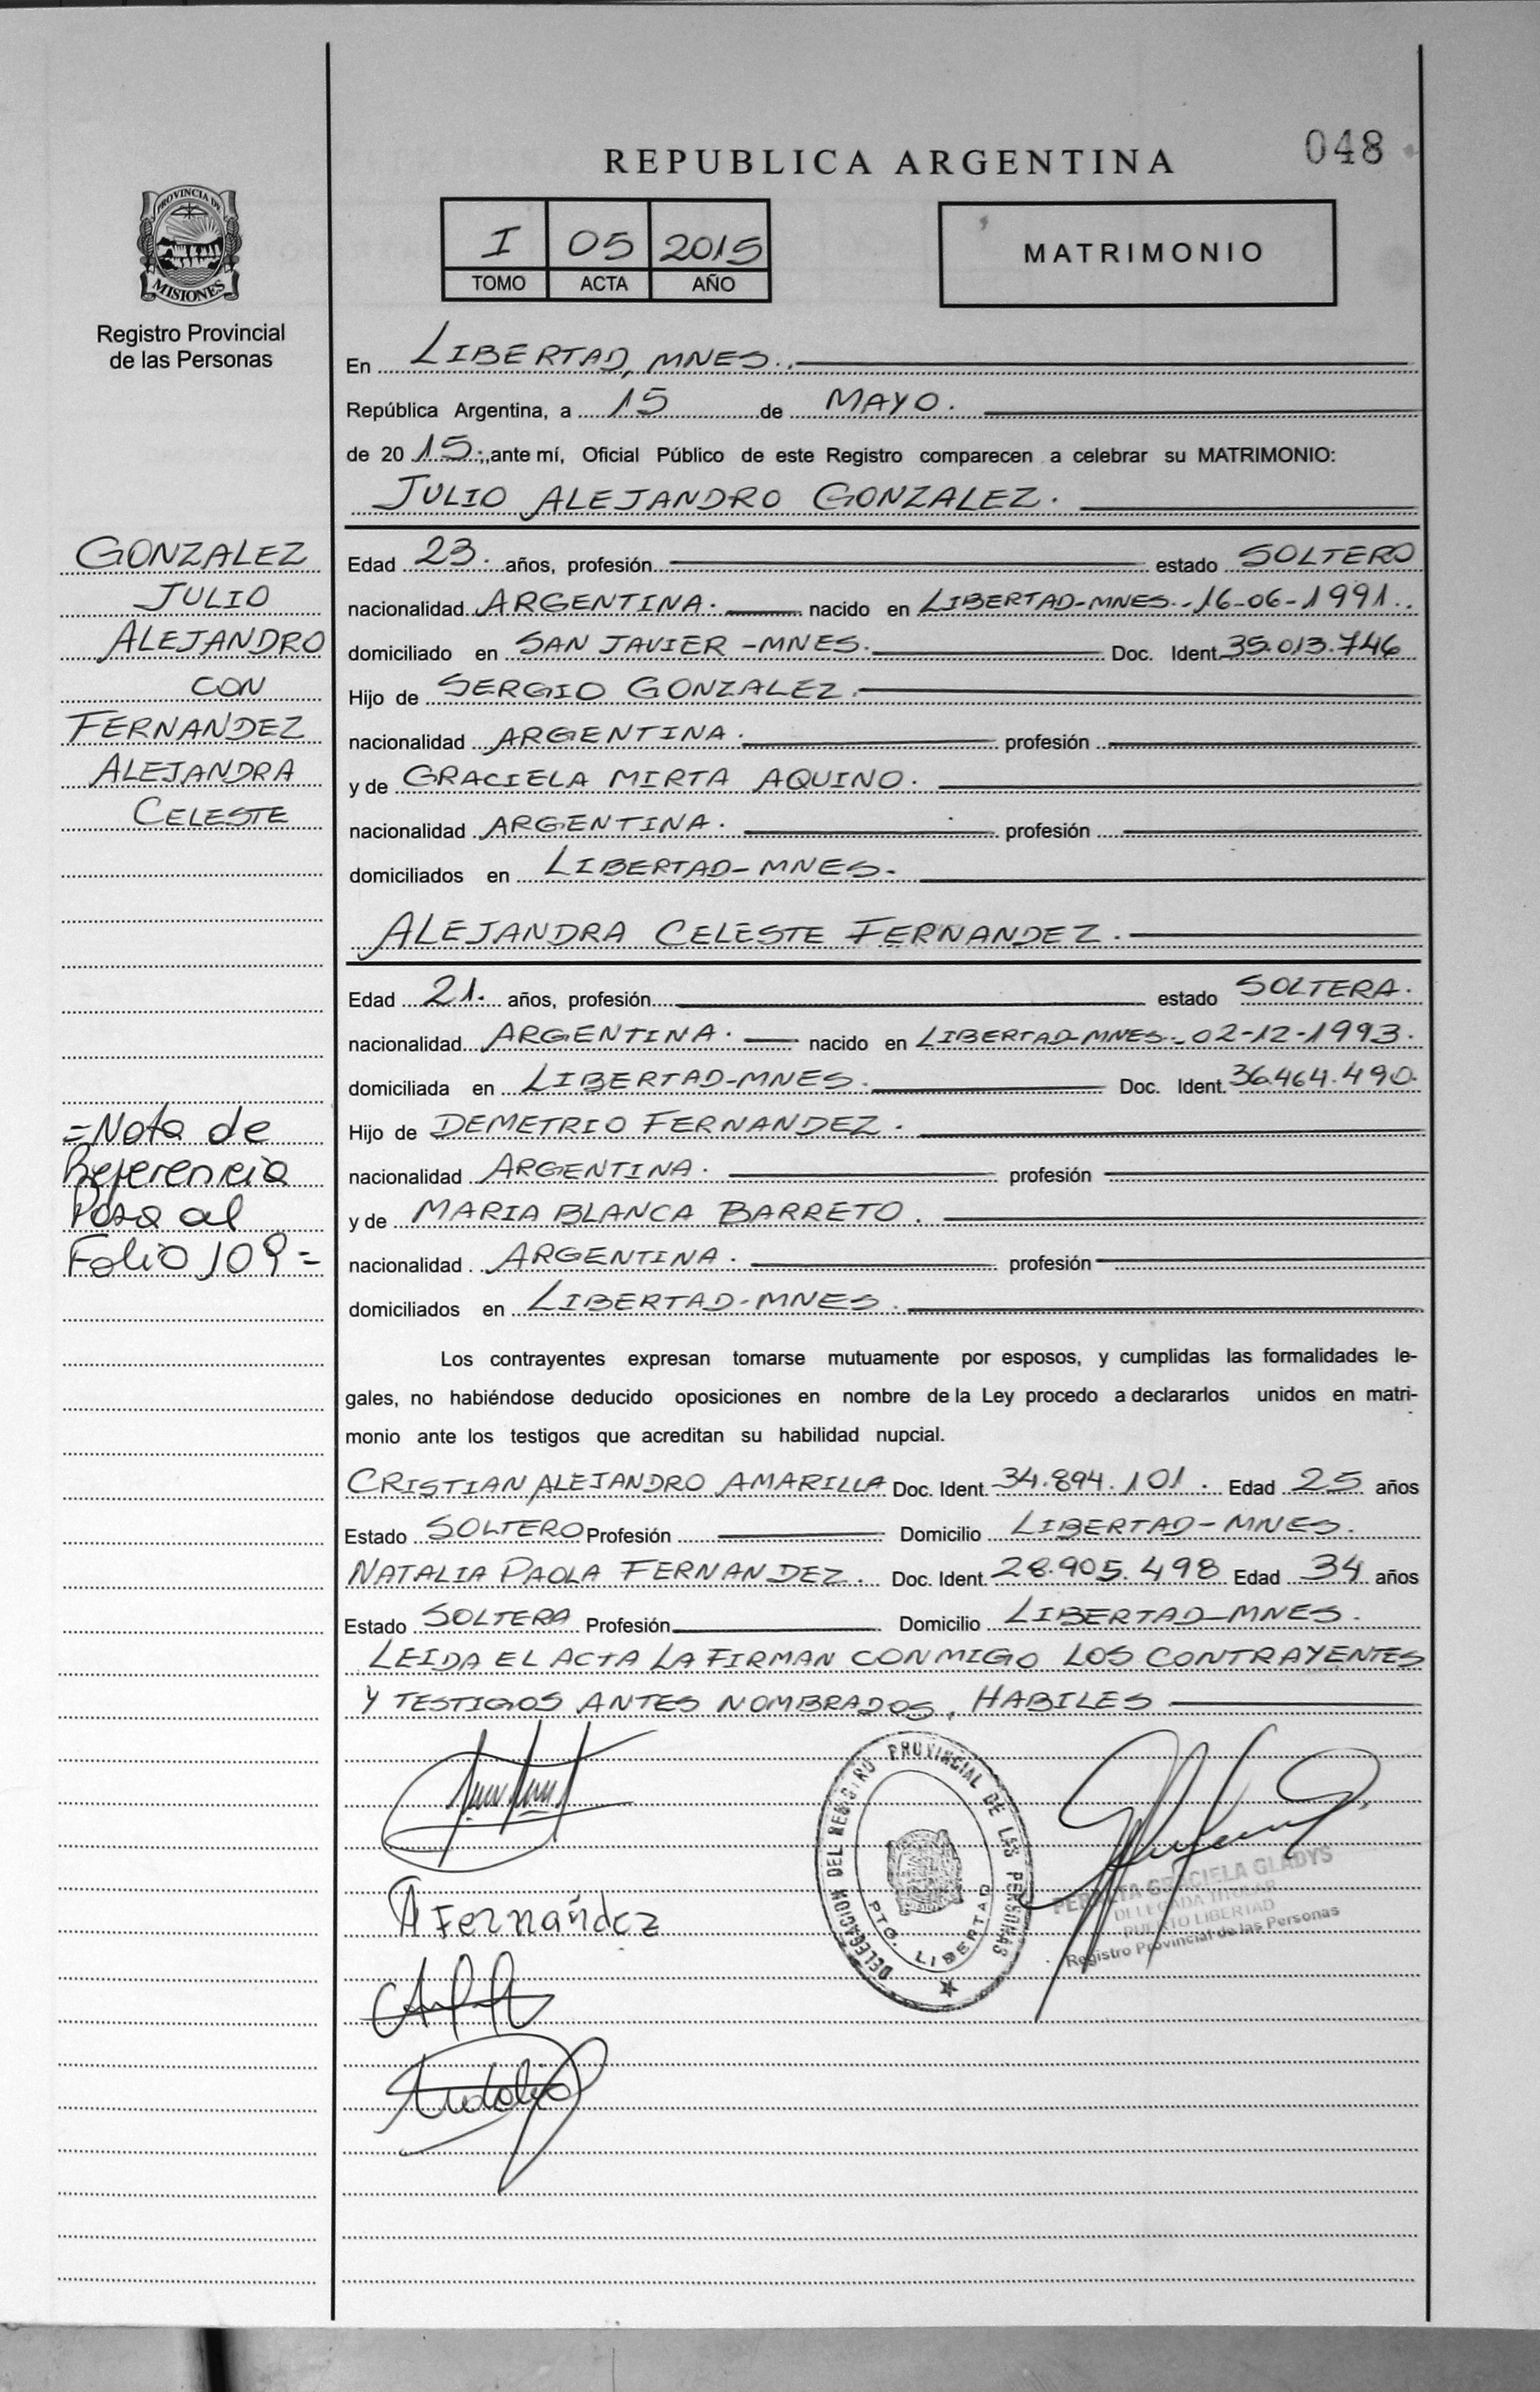 048
REPUBLICA ARGENTINA
PROVINCIA DE
MISIONES
Registro Provincial
de las Personas
I 05 2015
TOMO ACTA AÑO
MATRIMONIO
En LIBERTAD, MNES.
República Argentina, a 15 de MAYO.
de 20 15, ante mí, Oficial Público de este Registro comparecen a celebrar su MATRIMONIO:
JULIO ALEJANDRO GONZALEZ.
GONZALEZ
JULIO
ALEJANDRO
CON
FERNANDEZ
ALEJANDRA
CELESTE
Edad 23. años, profesión estado SOLTERO
nacionalidad ARGENTINA. nacido en LIBERTAD-MNES.-16-06-1991.
domiciliado en SAN JAVIER -MNES. Doc. Ident. 35.013.746
Hijo de SERGIO GONZALEZ.
nacionalidad ARGENTINA. profesión
y de GRACIELA MIRTA AQUINO.
nacionalidad ARGENTINA. profesión
domiciliados en LIBERTAD-MNES.
ALEJANDRA CELESTE FERNANDEZ.
Edad 21. años, profesión estado SOLTERA.
nacionalidad ARGENTINA. nacido en LIBERTAD-MNES.-02-12-1993.
domiciliada en LIBERTAD-MNES. Doc. Ident. 36.464.490.
Hijo de DEMETRIO FERNANDEZ.
nacionalidad ARGENTINA. profesión
y de MARIA BLANCA BARRETO.
nacionalidad ARGENTINA. profesión
domiciliados en LIBERTAD-MNES.
=Nota de
Referencia
Pasa al
Folio 109=
Los contrayentes expresan tomarse mutuamente por esposos, y cumplidas las formalidades le-
gales, no habiéndose deducido oposiciones en nombre de la Ley procedo a declararlos unidos en matri-
monio ante los testigos que acreditan su habilidad nupcial.
CRISTIAN ALEJANDRO AMARILLA Doc. Ident. 34.894.101. Edad 25 años
Estado SOLTERO Profesión Domicilio LIBERTAD-MNES.
NATALIA PAOLA FERNANDEZ. Doc. Ident. 28.905.498 Edad 34 años
Estado SOLTERA Profesión Domicilio LIBERTAD-MNES.
LEIDA EL ACTA LA FIRMAN CONMIGO LOS CONTRAYENTES
Y TESTIGOS ANTES NOMBRADOS, HABILES
A Fernández
DELEGACION DEL REGISTRO PROVINCIAL DE LAS PERSONAS
PTO. LIBERTAD
GRACIELA GLADYS
DELEGADA TITULAR
PUERTO LIBERTAD
Registro Provincial de las Personas